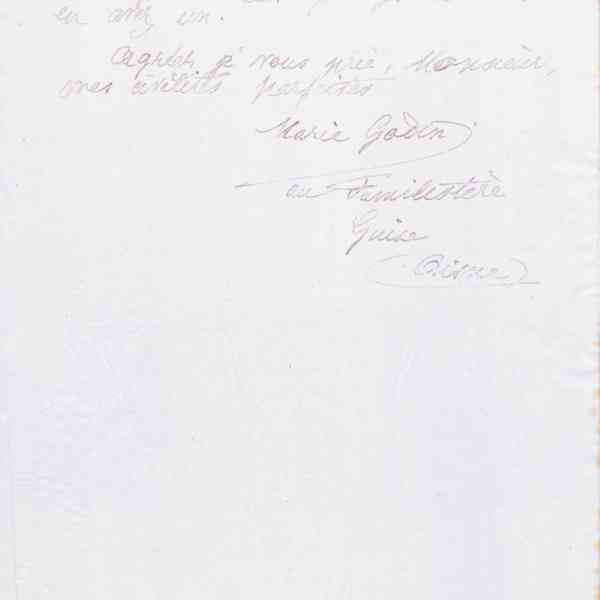 en avez un.
Agréez, je vous prie, Monsieur,
mes civilités parfaites
Marie Godin
au Familistère
Guise
(Aisne)